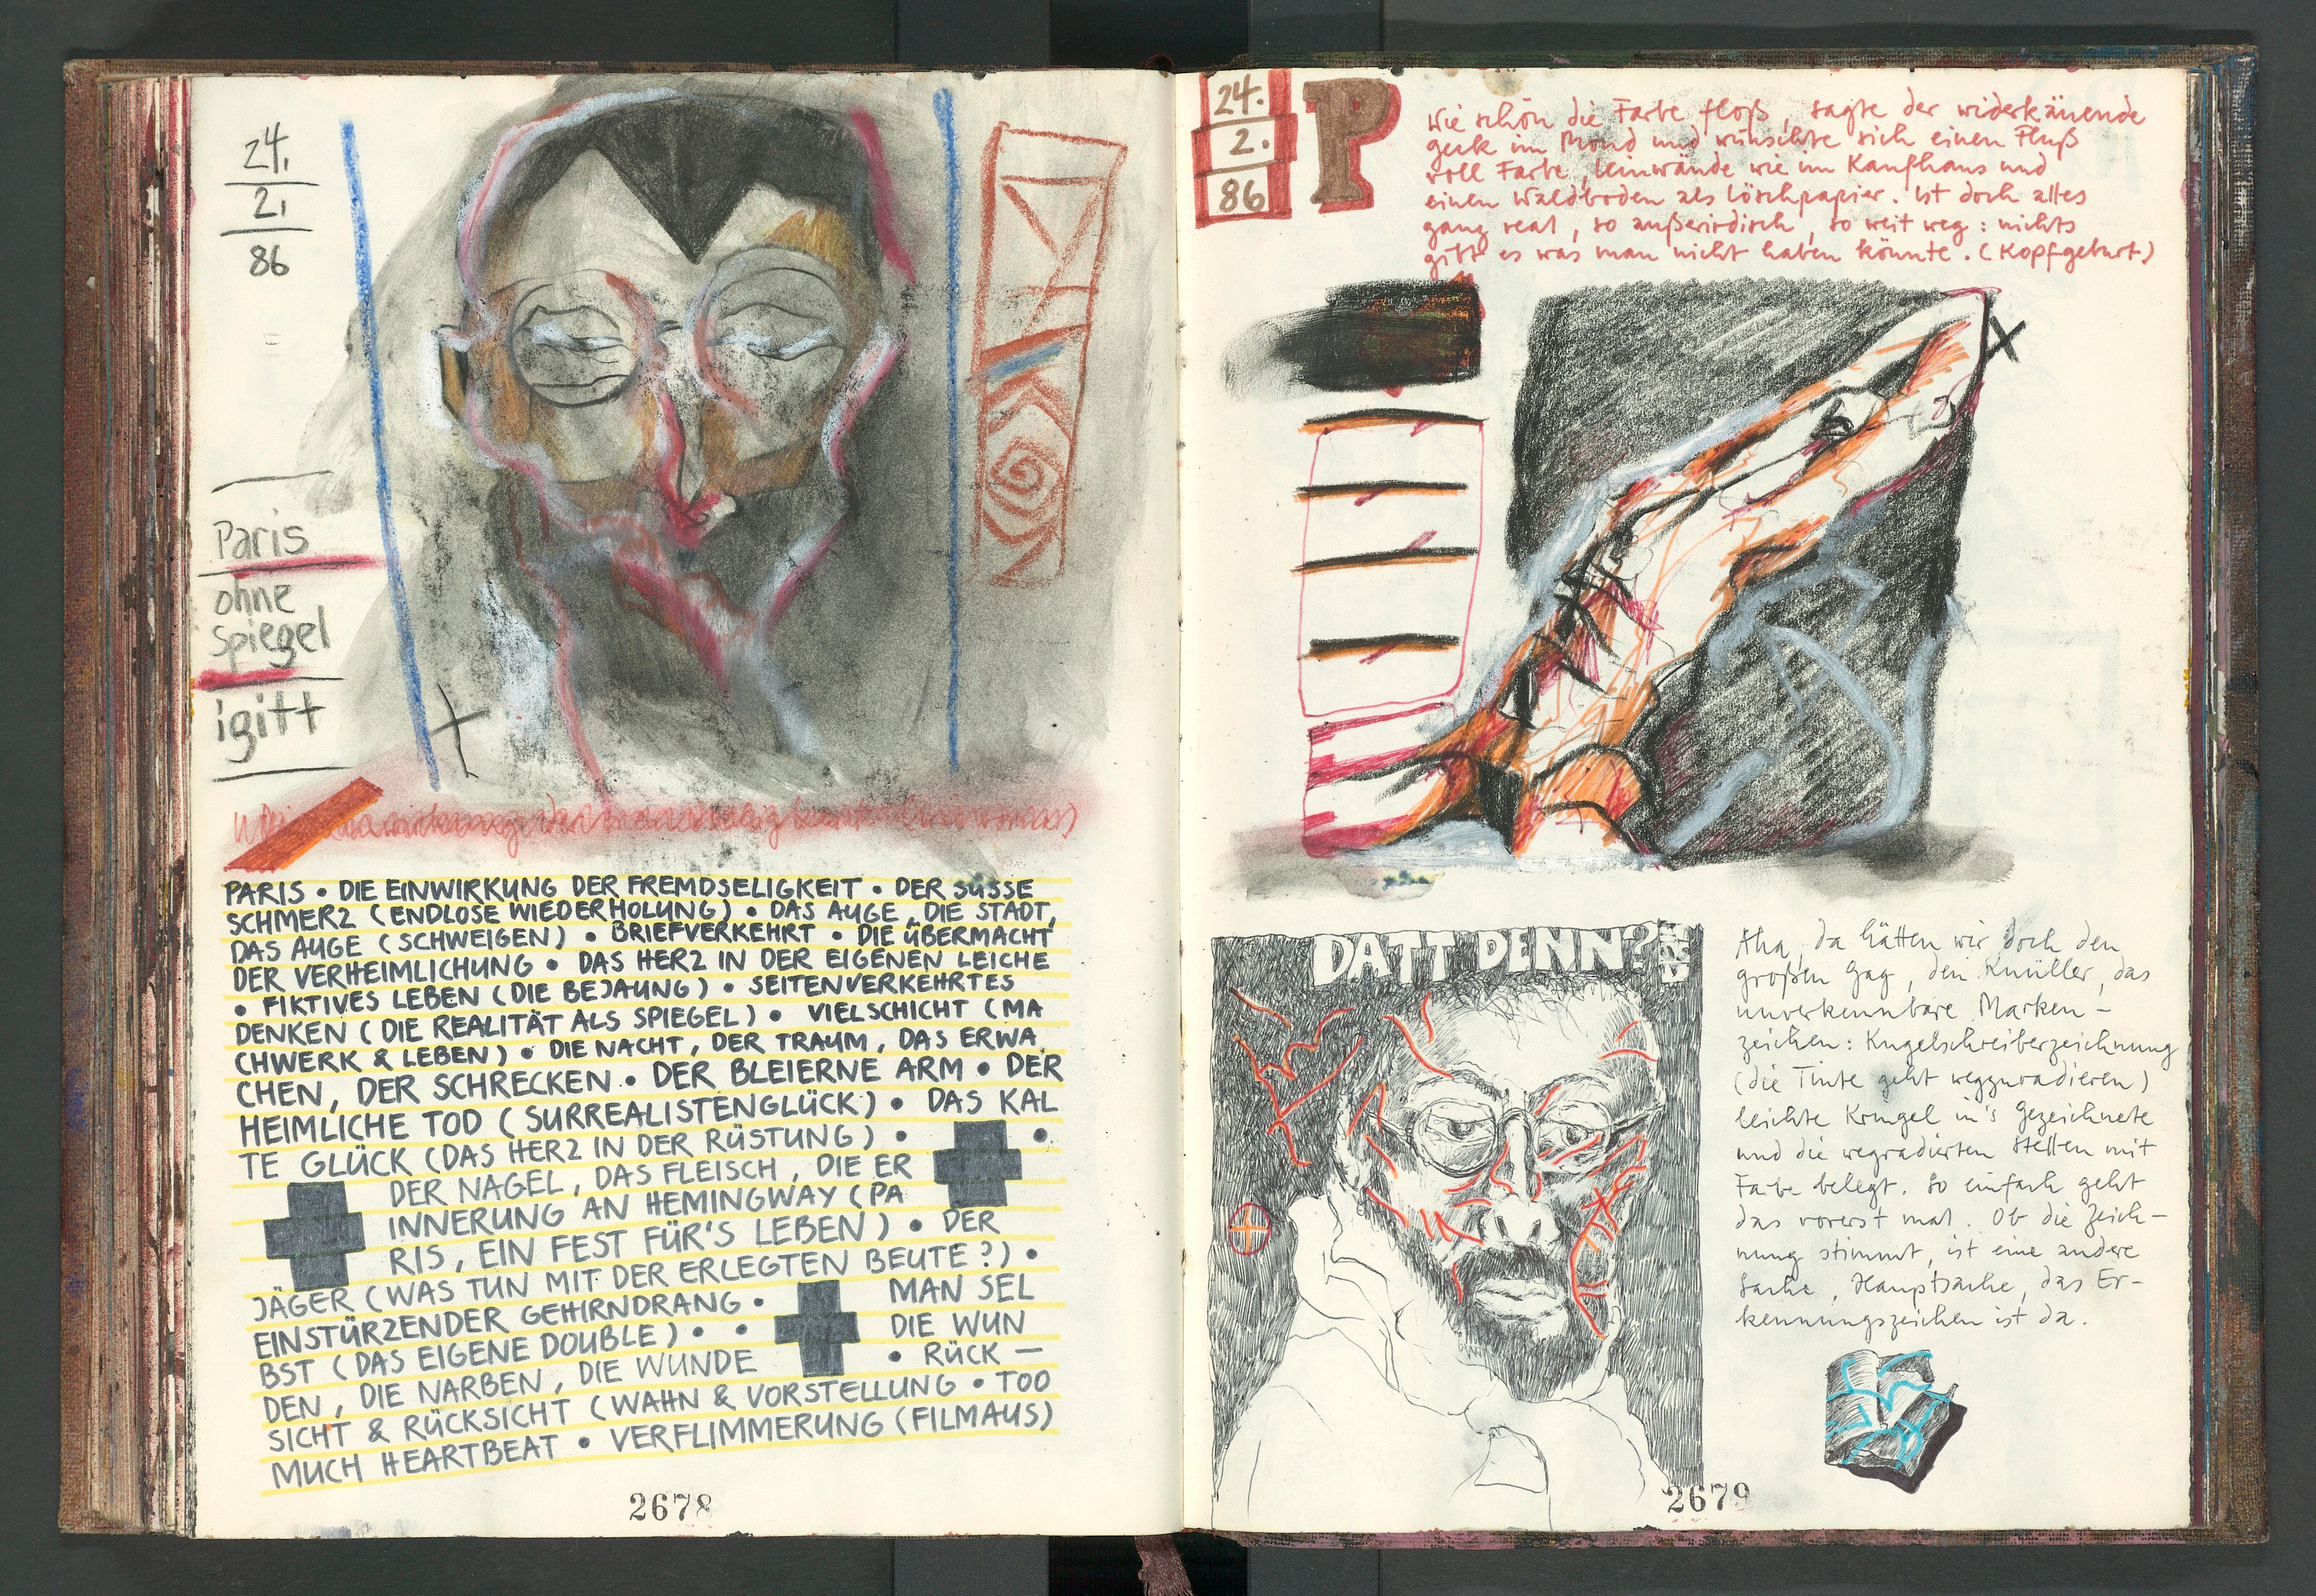 24.
2.
86
Paris
ohne
Spiegel
igitt
PARIS • DIE EINWIRKUNG DER FREMDSELIGKEIT • DER SÜSSE
SCHMERZ (ENDLOSE WIEDERHOLUNG) • DAS AUGE, DIE STADT,
DAS AUGE (SCHWEIGEN) • BRIEFVERKEHRT • DIE ÜBERMACHT
DER VERHEIMLICHUNG • DAS HERZ IN DER EIGENEN LEICHE
• FIKTIVES LEBEN (DIE BEJAUNG) • SEITENVERKEHRTES
DENKEN (DIE REALITÄT ALS SPIEGEL) • VIELSCHICHT (MA
CHWERK & LEBEN) • DIE NACHT, DER TRAUM, DAS ERWA
CHEN, DER SCHRECKEN • DER BLEIERNE ARM • DER
HEIMLICHE TOD (SURREALISTENGLÜCK) • DAS KAL
TE GLÜCK (DAS HERZ IN DER RÜSTUNG) • •
DER NAGEL, DAS FLEISCH, DIE ER
INNERUNG AN HEMINGWAY (PA
RIS, EIN FEST FÜR'S LEBEN) • DER
JÄGER (WAS TUN MIT DER ERLEGTEN BEUTE?) •
EINSTÜRZENDER GEHIRNDRANG • MAN SEL
BST (DAS EIGENE DOUBLE) • • DIE WUN
DEN, DIE NARBEN, DIE WUNDE • RÜCK —
SICHT & RÜCKSICHT (WAHN & VORSTELLUNG • TOO
MUCH HEARTBEAT • VERFLIMMERUNG (FILMAUS)
2678
24.
2.
86
P
Wie schön die Farbe floß, sagte der widerkäuende
geck im Mond und wünschte sich einen Fluß
voll Farbe, leinwände wie im Kaufhaus und
einen Waldboden als Löschpapier. ist doch alles
ganz real, so außerirdisch, so weit weg: nichts
gibt es was man nicht haben könnte. (Kopfgeburt)
DATT DENN?
Aha, da hätten wir doch den
großen Gag, den Knüller, das
unverkennbare Marken-
zeichen: Kugelschreiberzeichnung
(die Tinte geht wegzuradieren)
leichte Kringel in's Gezeichnete
und die wegradierten Stellen mit
Farbe belegt. So einfach geht
das vorerst mal. Ob die Zeich-
nung stimmt, ist eine andere
Sache, Hauptsache, das Er-
kennungszeichen ist da.
2679